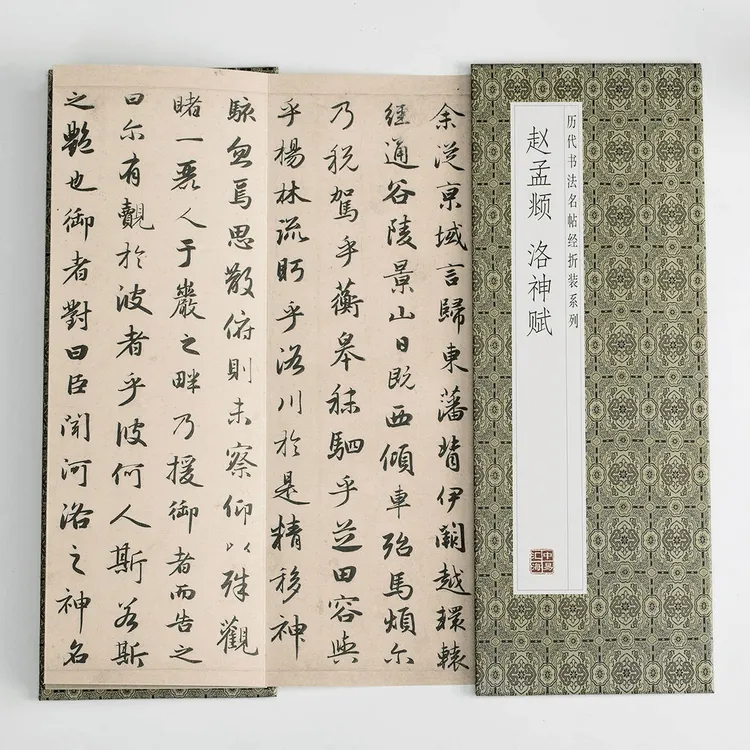 历代书法名帖经折装系列
赵孟𫖯 洛神赋
中易
汇海
余從京域言歸東藩背伊闕越轘轅
經通谷陵景山日既西傾車殆馬煩尓
乃税駕乎蘅皋秣駟乎芝田容與
乎楊林流盻乎洛川於是精移神
駭忽焉思散俯則未察仰以殊觀
睹一麗人于巖之畔乃援御者而告之
曰尓有覿於彼者乎彼何人斯若斯
之艷也御者對曰臣聞河洛之神名